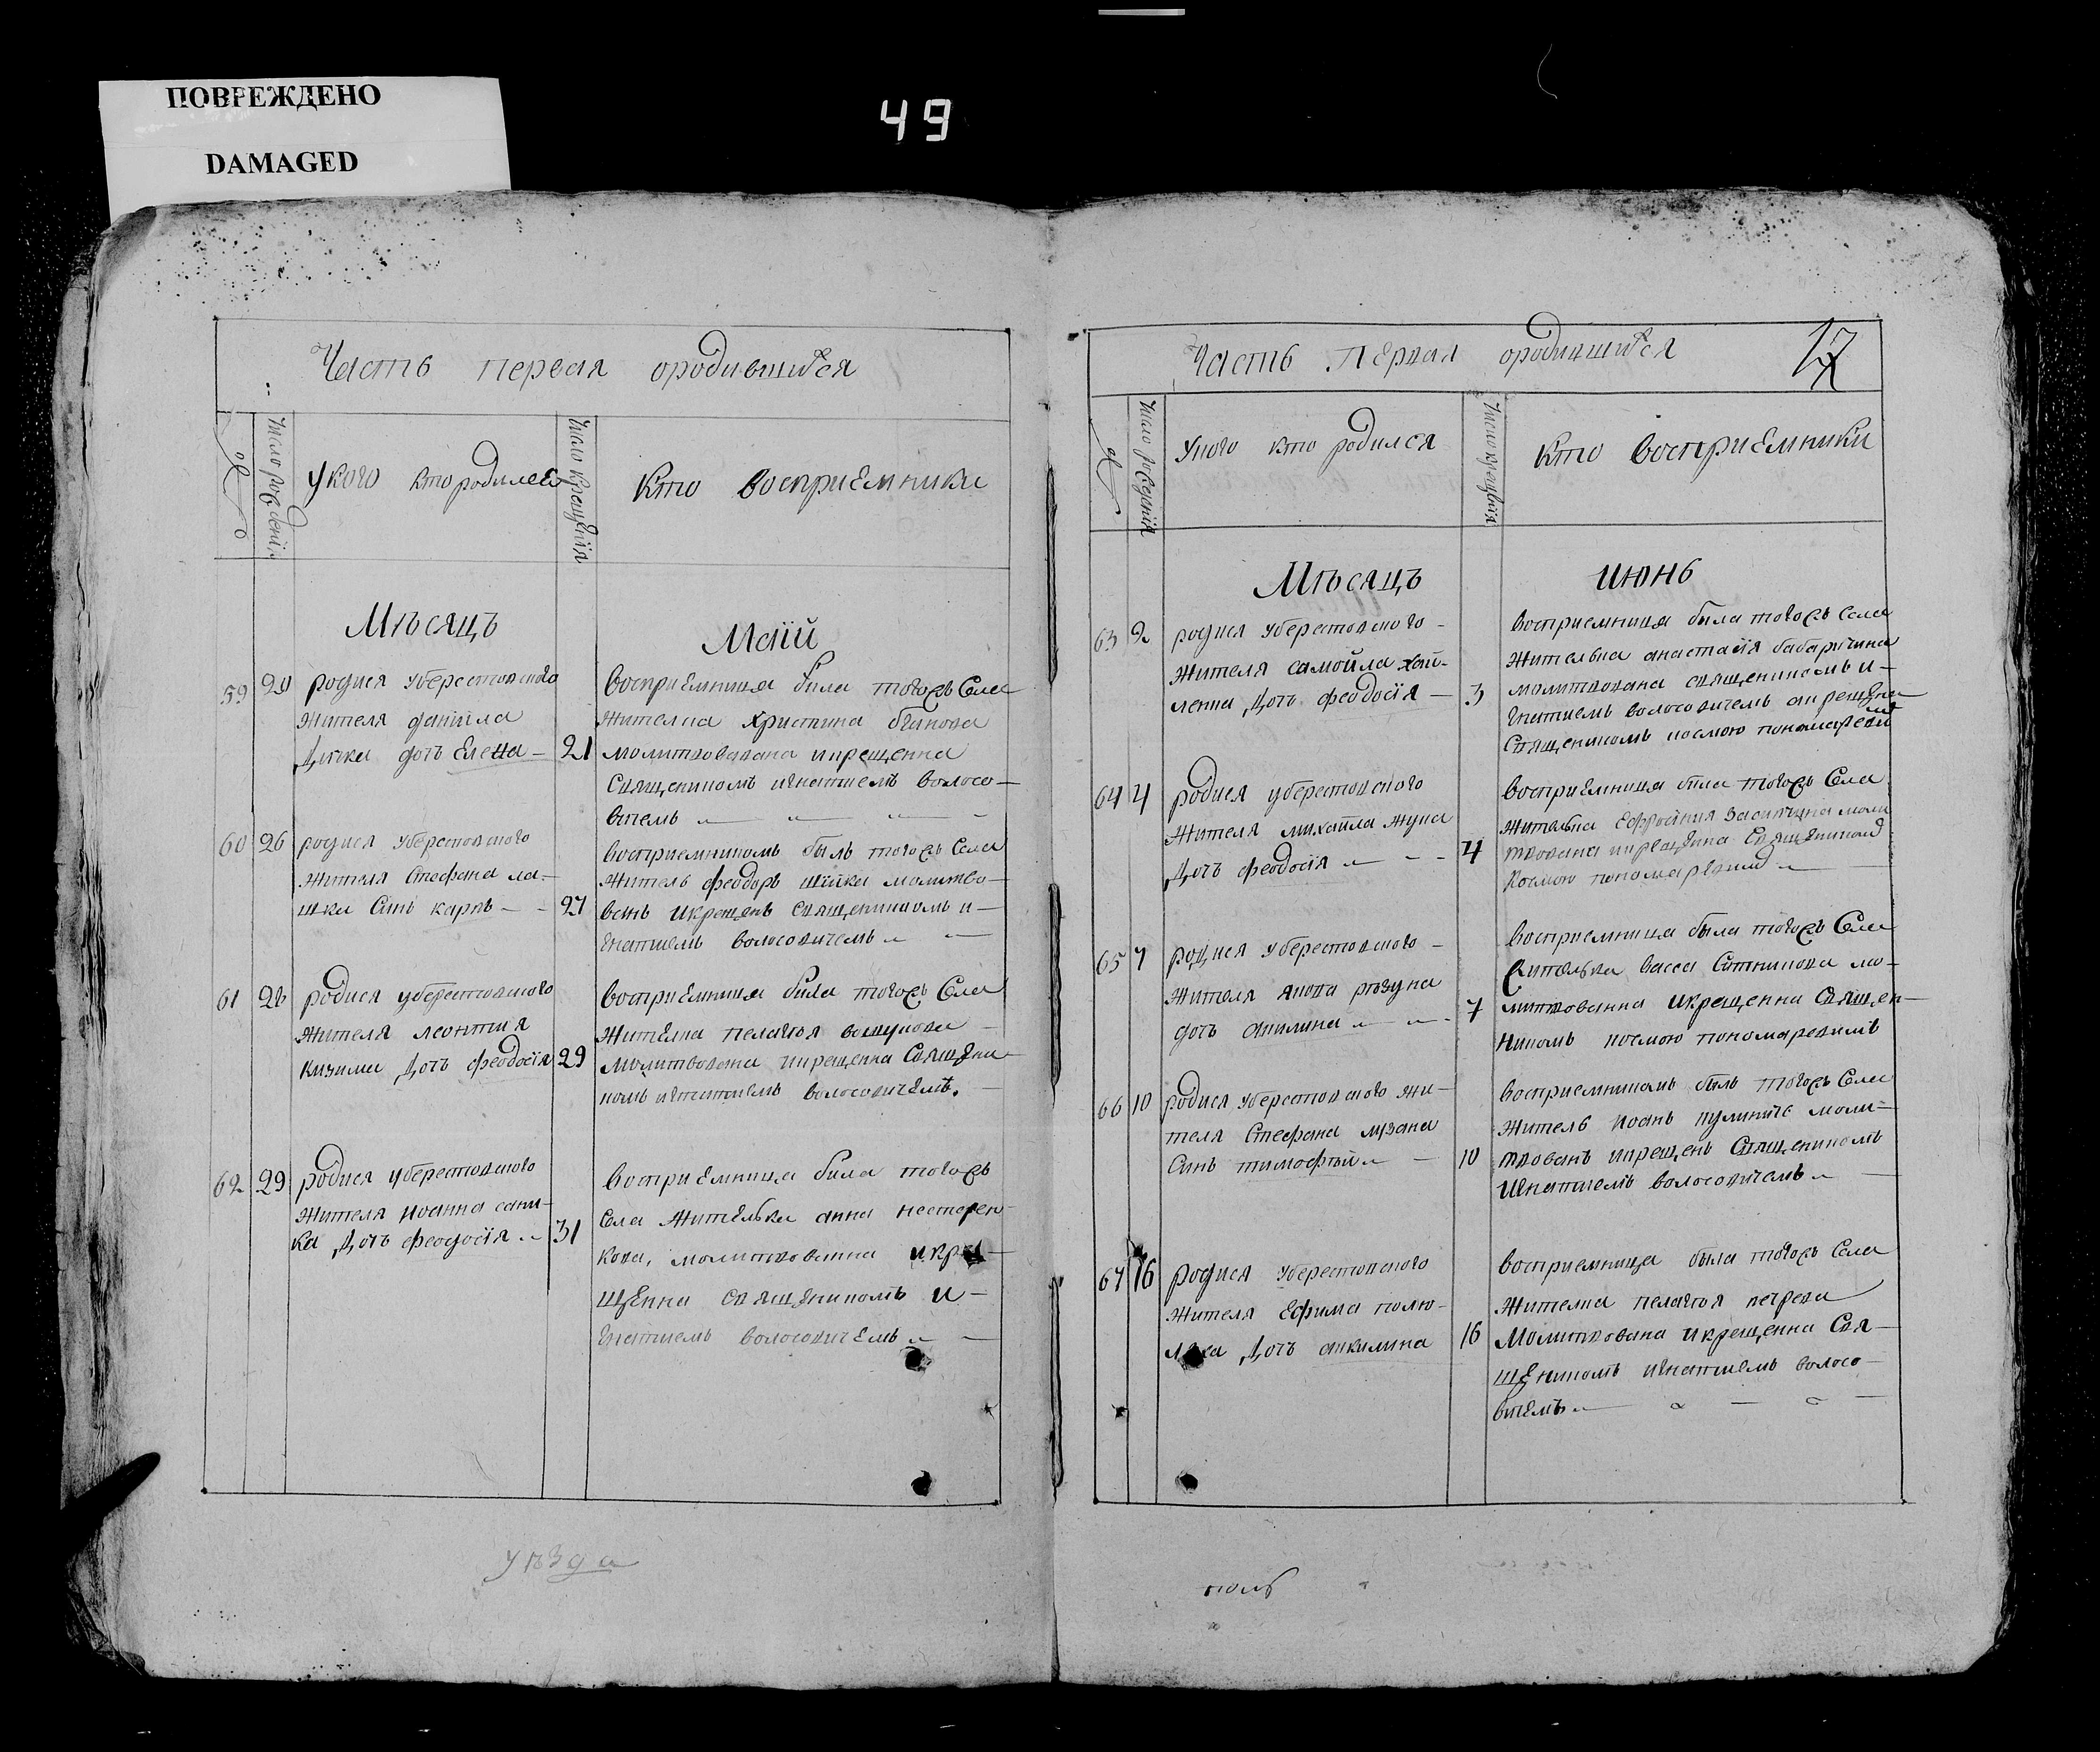 ПОВРЕЖДЕНО
DAMAGED
49
Часть первая ородившихся
№
Число рождения
У кого кто родился
Число крещения
Кто восприемники
Мѣсяцъ Маій
59 20 родися уберестовского
жителя данїила
дички дочъ Елена — 21
восприемница била тогожъ Села
жителка христина
молитвована икрещенна
Священикомъ игнатиемъ волосо—
вичемъ
60 26 родися уберестовского
жителя Стефана ла-
шки Синъ карпъ — 27
восприемникомъ былъ тогожъ Села
житель феодоръ шїйка молитво—
ванъ икрещенъ священикомъ и—
гнатиемъ волосовичемъ
61 28 родися уберестовского
жителя леонтия
кизими дочъ феодосїя 29
восприемница била тогожъ Села
жителка пелагея
молитвована икрещенна Священи—
комъ игнатиемъ волосовичемъ.
62 29 родися уберестовского
жителя иоанна сани-
ка дочъ феодосїя 31
восприемница била тогожъ
Села жителька анна нестерен-
кова, молитвованна икре—
щенна священикомъ и—
гнатиемъ волосовичемъ
уѣзда
Часть первая ородившихся 17
№
Число рождения
Укого кто родился
Число крещения
Кто восприемники
Мѣсяцъ июнь
63 2 родися уберестовского -
жителя самойла хай-
ленка дочъ феодосїя — 3
восприемница была тогожъ Села
жителька анастасїя бабаричина
молитвована священикомъ и—
гнатиемъ волосовичемъ акрещена
Священикомъ космою пономаревим
64 4 родися уберестовского
жителя михайла жука
дочъ феодосїя — 4
восприемница била тогожъ Села
жителька Ефросиния моли
твована икрещена Священикомъ
Космою пономаревим
65 7 родися уберестовского —
жителя якова рѣзуна
дочъ акилина 7
восприемница была тогожъ Села
жителька васса Ситникова мо—
литвованна икрещенна Священ—
никомъ космою пономаревимъ
66 10 родися уберестовского жи—
теля Стефана лузана
Синъ тимофтей — 10
восприемникомъ былъ тогожъ Села
житель иоанъ кулиничъ моли—
твованъ икрещенъ Священикомъ
Игнатиемъ волосовичемъ
67 16 родися уберестовского
жителя Ефима полю-
ляха дочъ акилина 16
восприемница была тогожъ Села
жителка пелагея петрева
Молитвована икрещенна Свя—
щеникомъ игнатиемъ волосо—
вичемъ